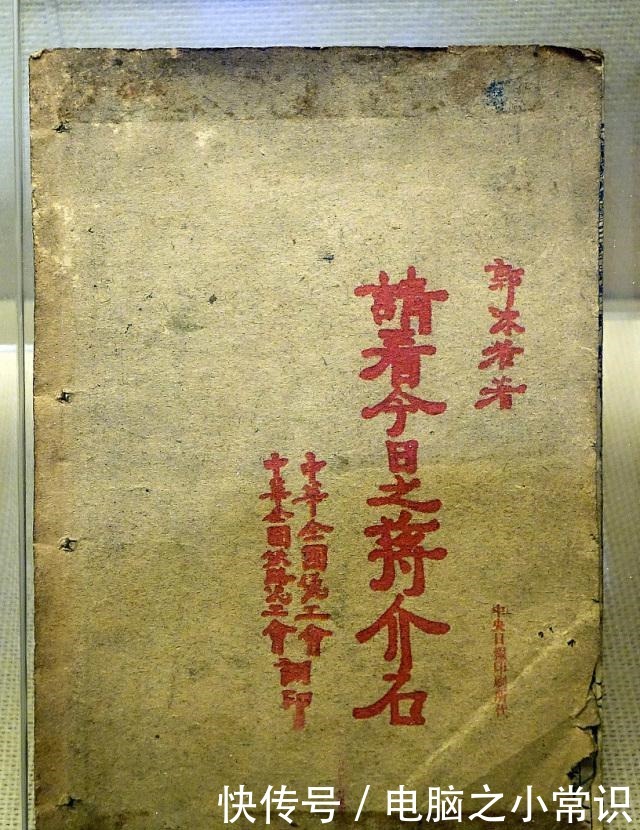 郭沫若著
請看今日之蔣介石
中華全國總工會
中華全國鉄路總工會翻印
中央日報印刷代
快传号 / 电脑之小常识